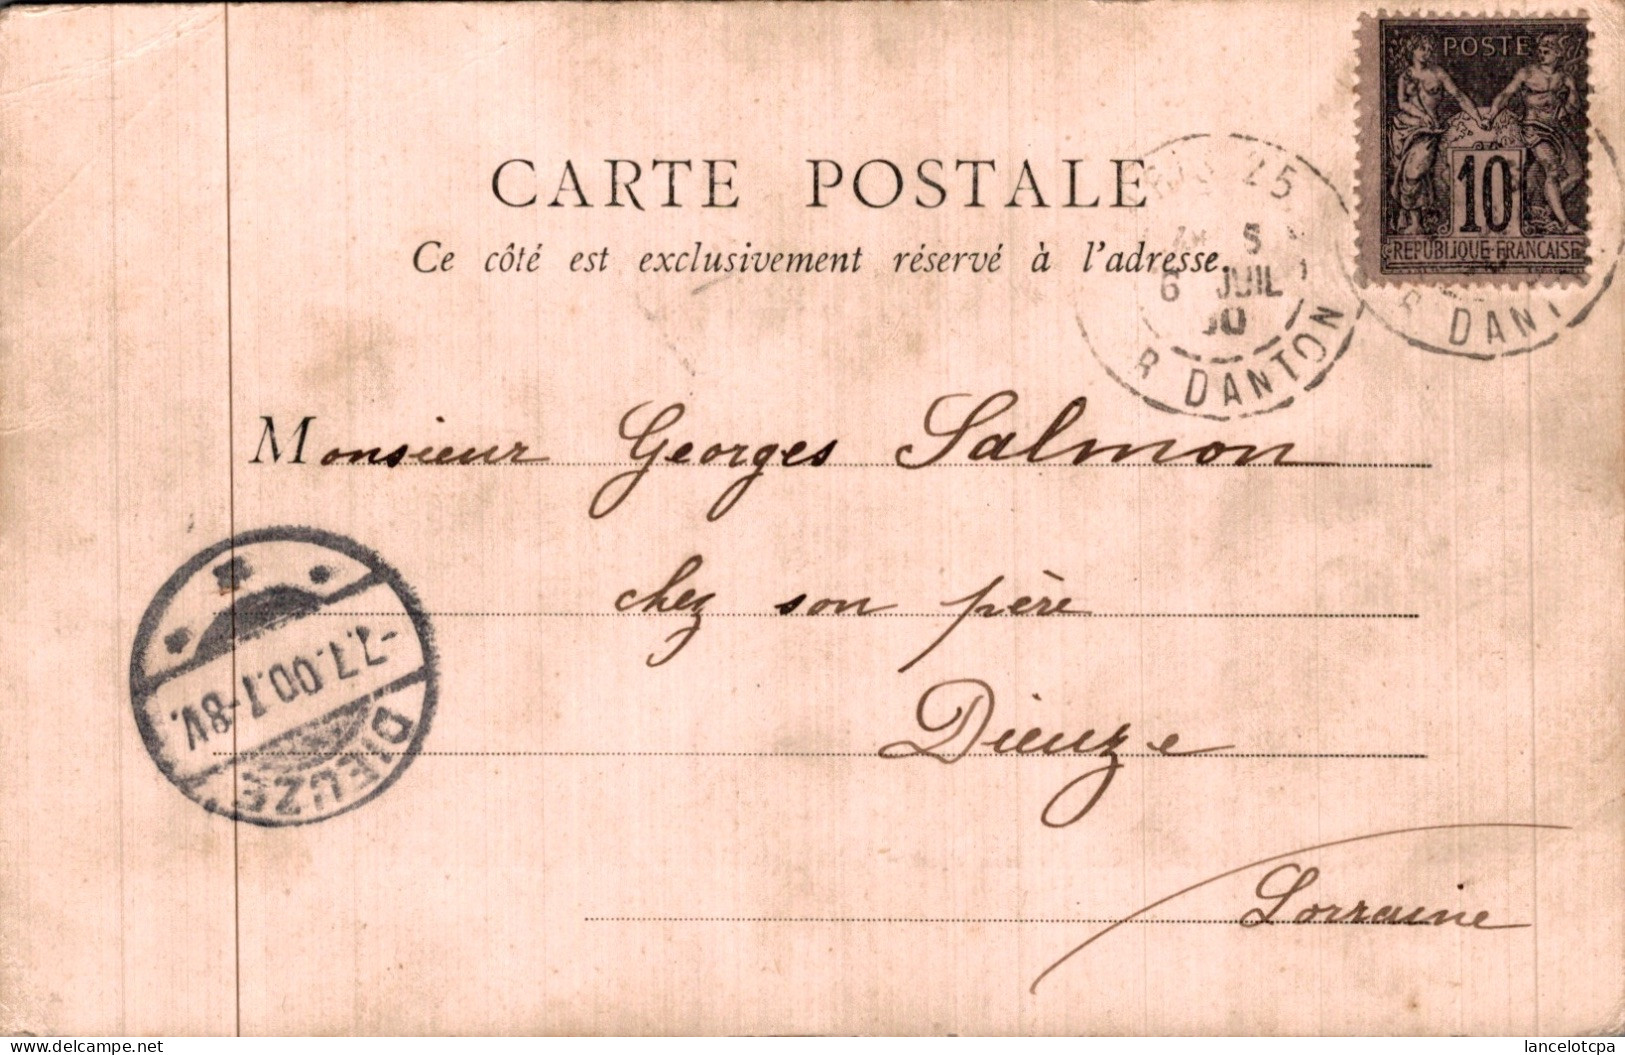 POSTE
10
REPUBLIQUE FRANCAISE
CARTE POSTALE
Ce côté est exclusivement réservé à l'adresse.
25
5
6 JUIL
R DANTON
R DANT
Monsieur Georges Salmon
chez son père
Dieuze
Lorraine
-7.7.00.7-8V.
DIEUZE
lancelotcpa
www.delcampe.net